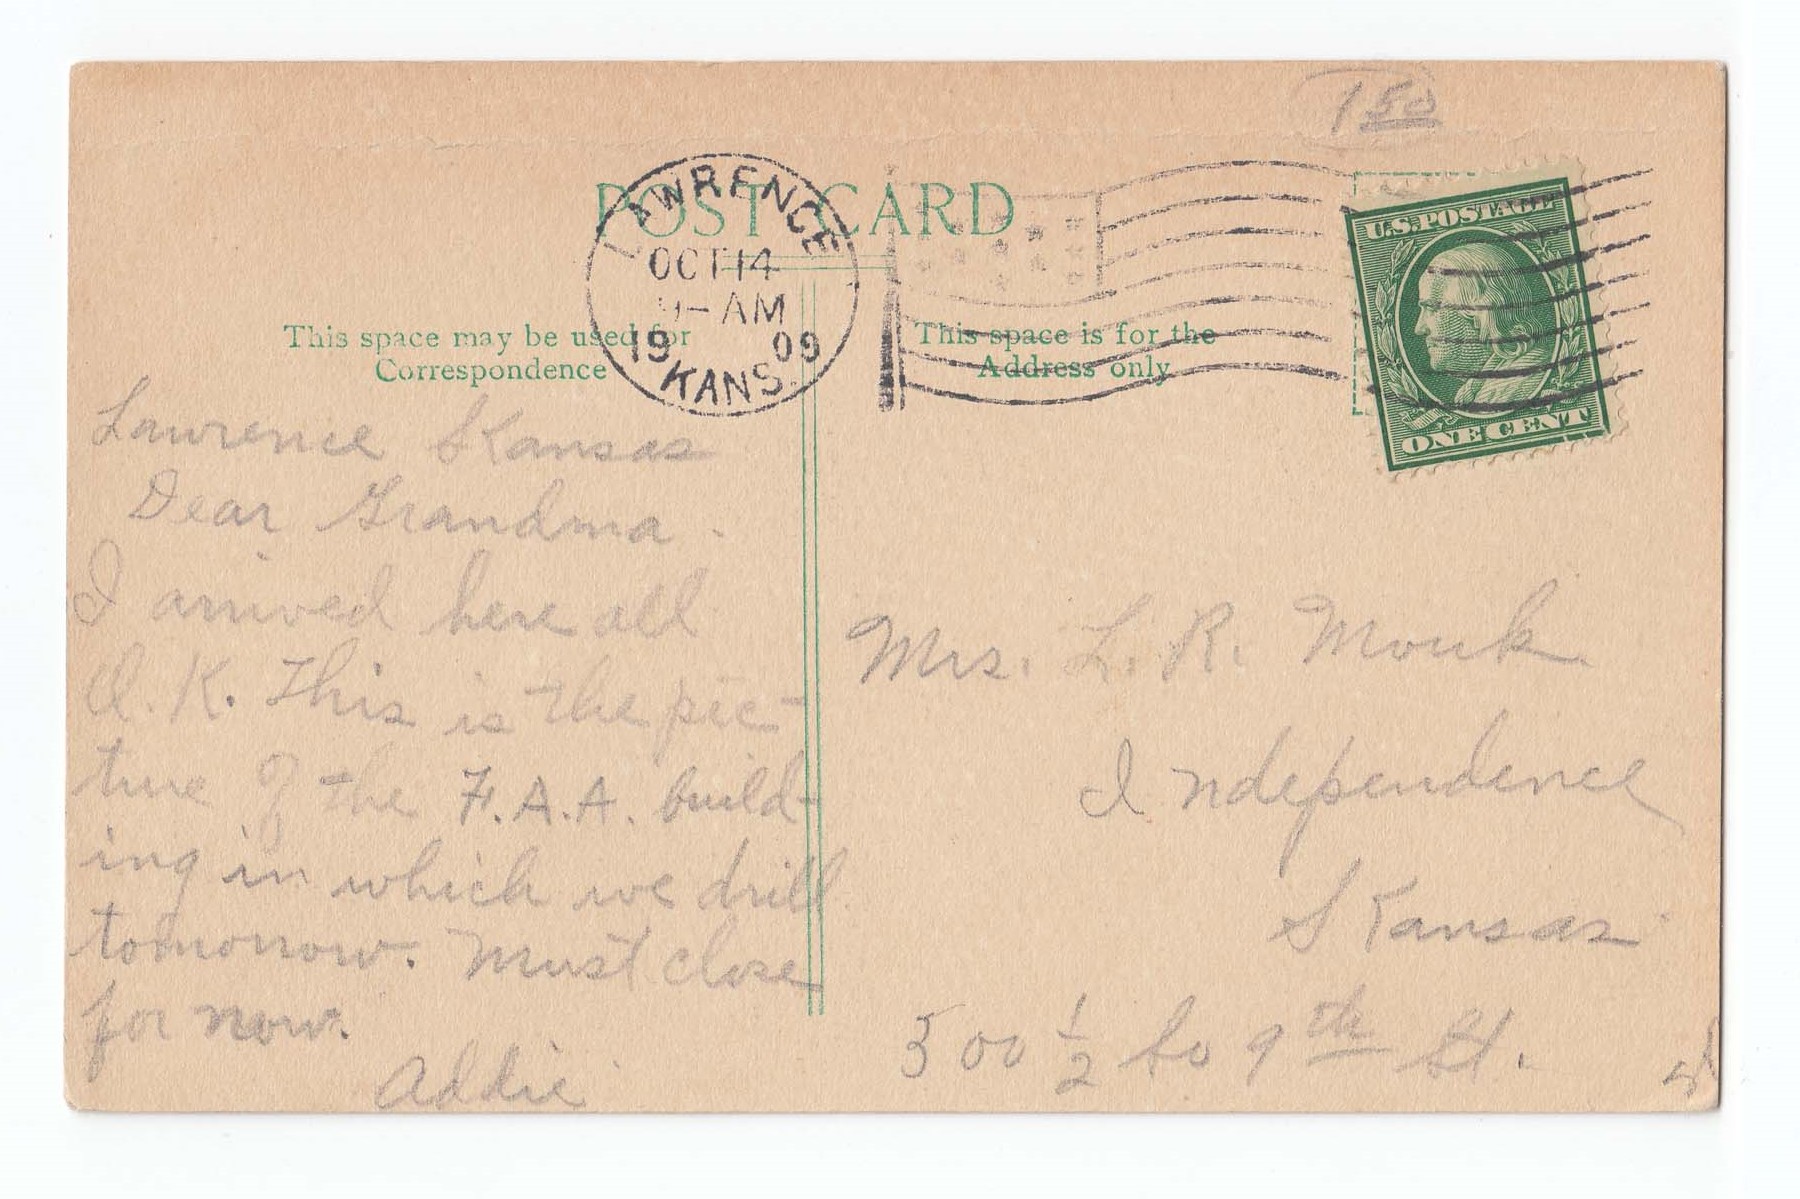 150
POST CARD
LAWRENCE
OCT 14
9-AM
1909
KANS.
U.S. POSTAGE
ONE CENT
This space may be used for
Correspondence
This space is for the
Address only
Lawrence Kansas
Dear Grandma.
I arrived here all
O.K. This is the pic-
ture of the F.A.A. build-
ing in which we drill
tomorrow. Must close
for now.
Addie
Mrs. L. R. Monk
Independence
Kansas.
500 1/2 So 9th St.